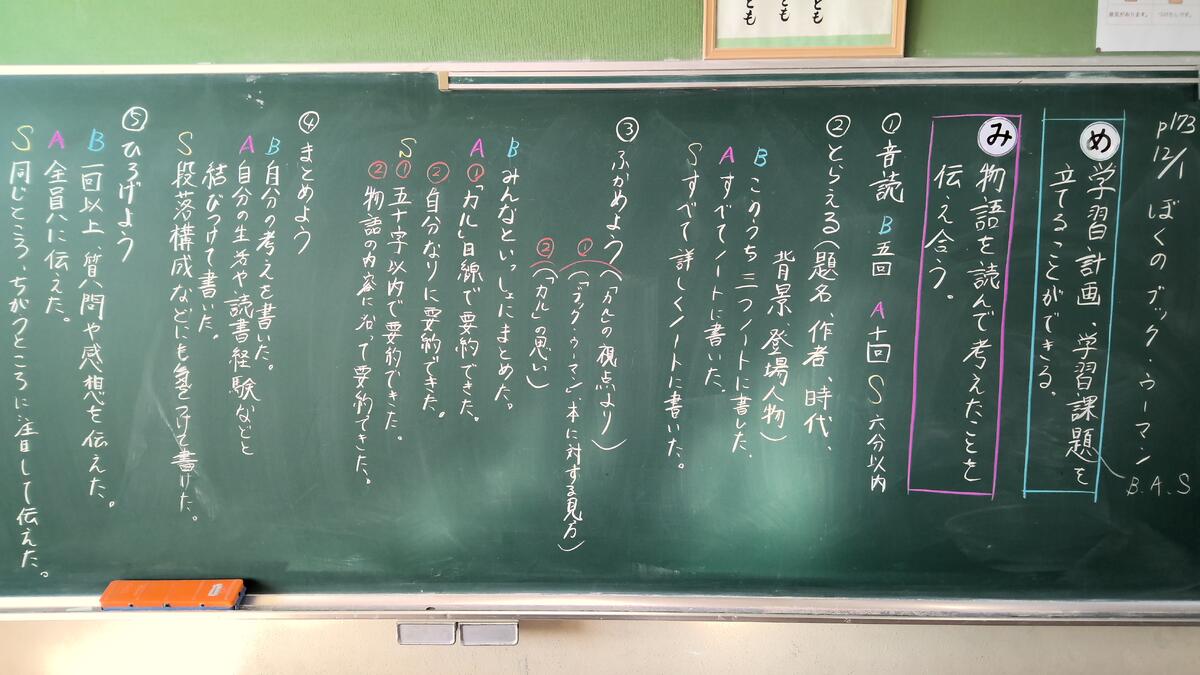 p173
12/1 ぼくのブック・ウーマン
め 学習計画、学習課題を
立てることができる。
B.A.S
み 物語を読んで考えたことを
伝え合う。
① 音読 B 五回 A 十回 S 六分以内
② とらえる(題名、作者、時代、
背景 登場人物)
B このうち三つノートに書した
A すべてノートに書いた。
S すべて詳しくノートに書いた。
③ ふかめよう(「カル」の視点より)
① (ブック・ウーマン、本に対する見方)
② (「カル」の思い)
B みんなといっしょにまとめた。
A ①「カル」目線で要約できた。
② 自分なりに要約できた。
S ① 五十字以内で要約できた。
② 物語の内容に沿って要約できた。
④ まとめよう
B 自分の考えを書いた。
A 自分の生き方や読書経験などと
結びつけて書いた。
S 段落構成などにも気をつけて書けた。
⑤ ひろげよう
B 一回以上、質問や感想を伝えた。
A 全員に伝えた。
S 同じところ、ちがうところに注目して伝えた。
とも
とも
とも